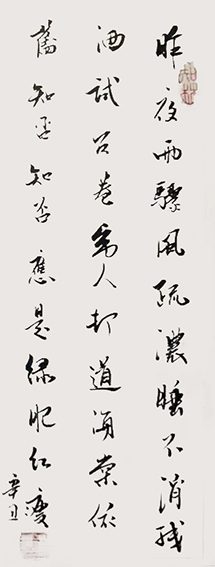 昨夜雨驟風疏濃睡不消残
酒試问卷帘人却道海棠依
舊知否知否應是绿肥红瘦
辛丑